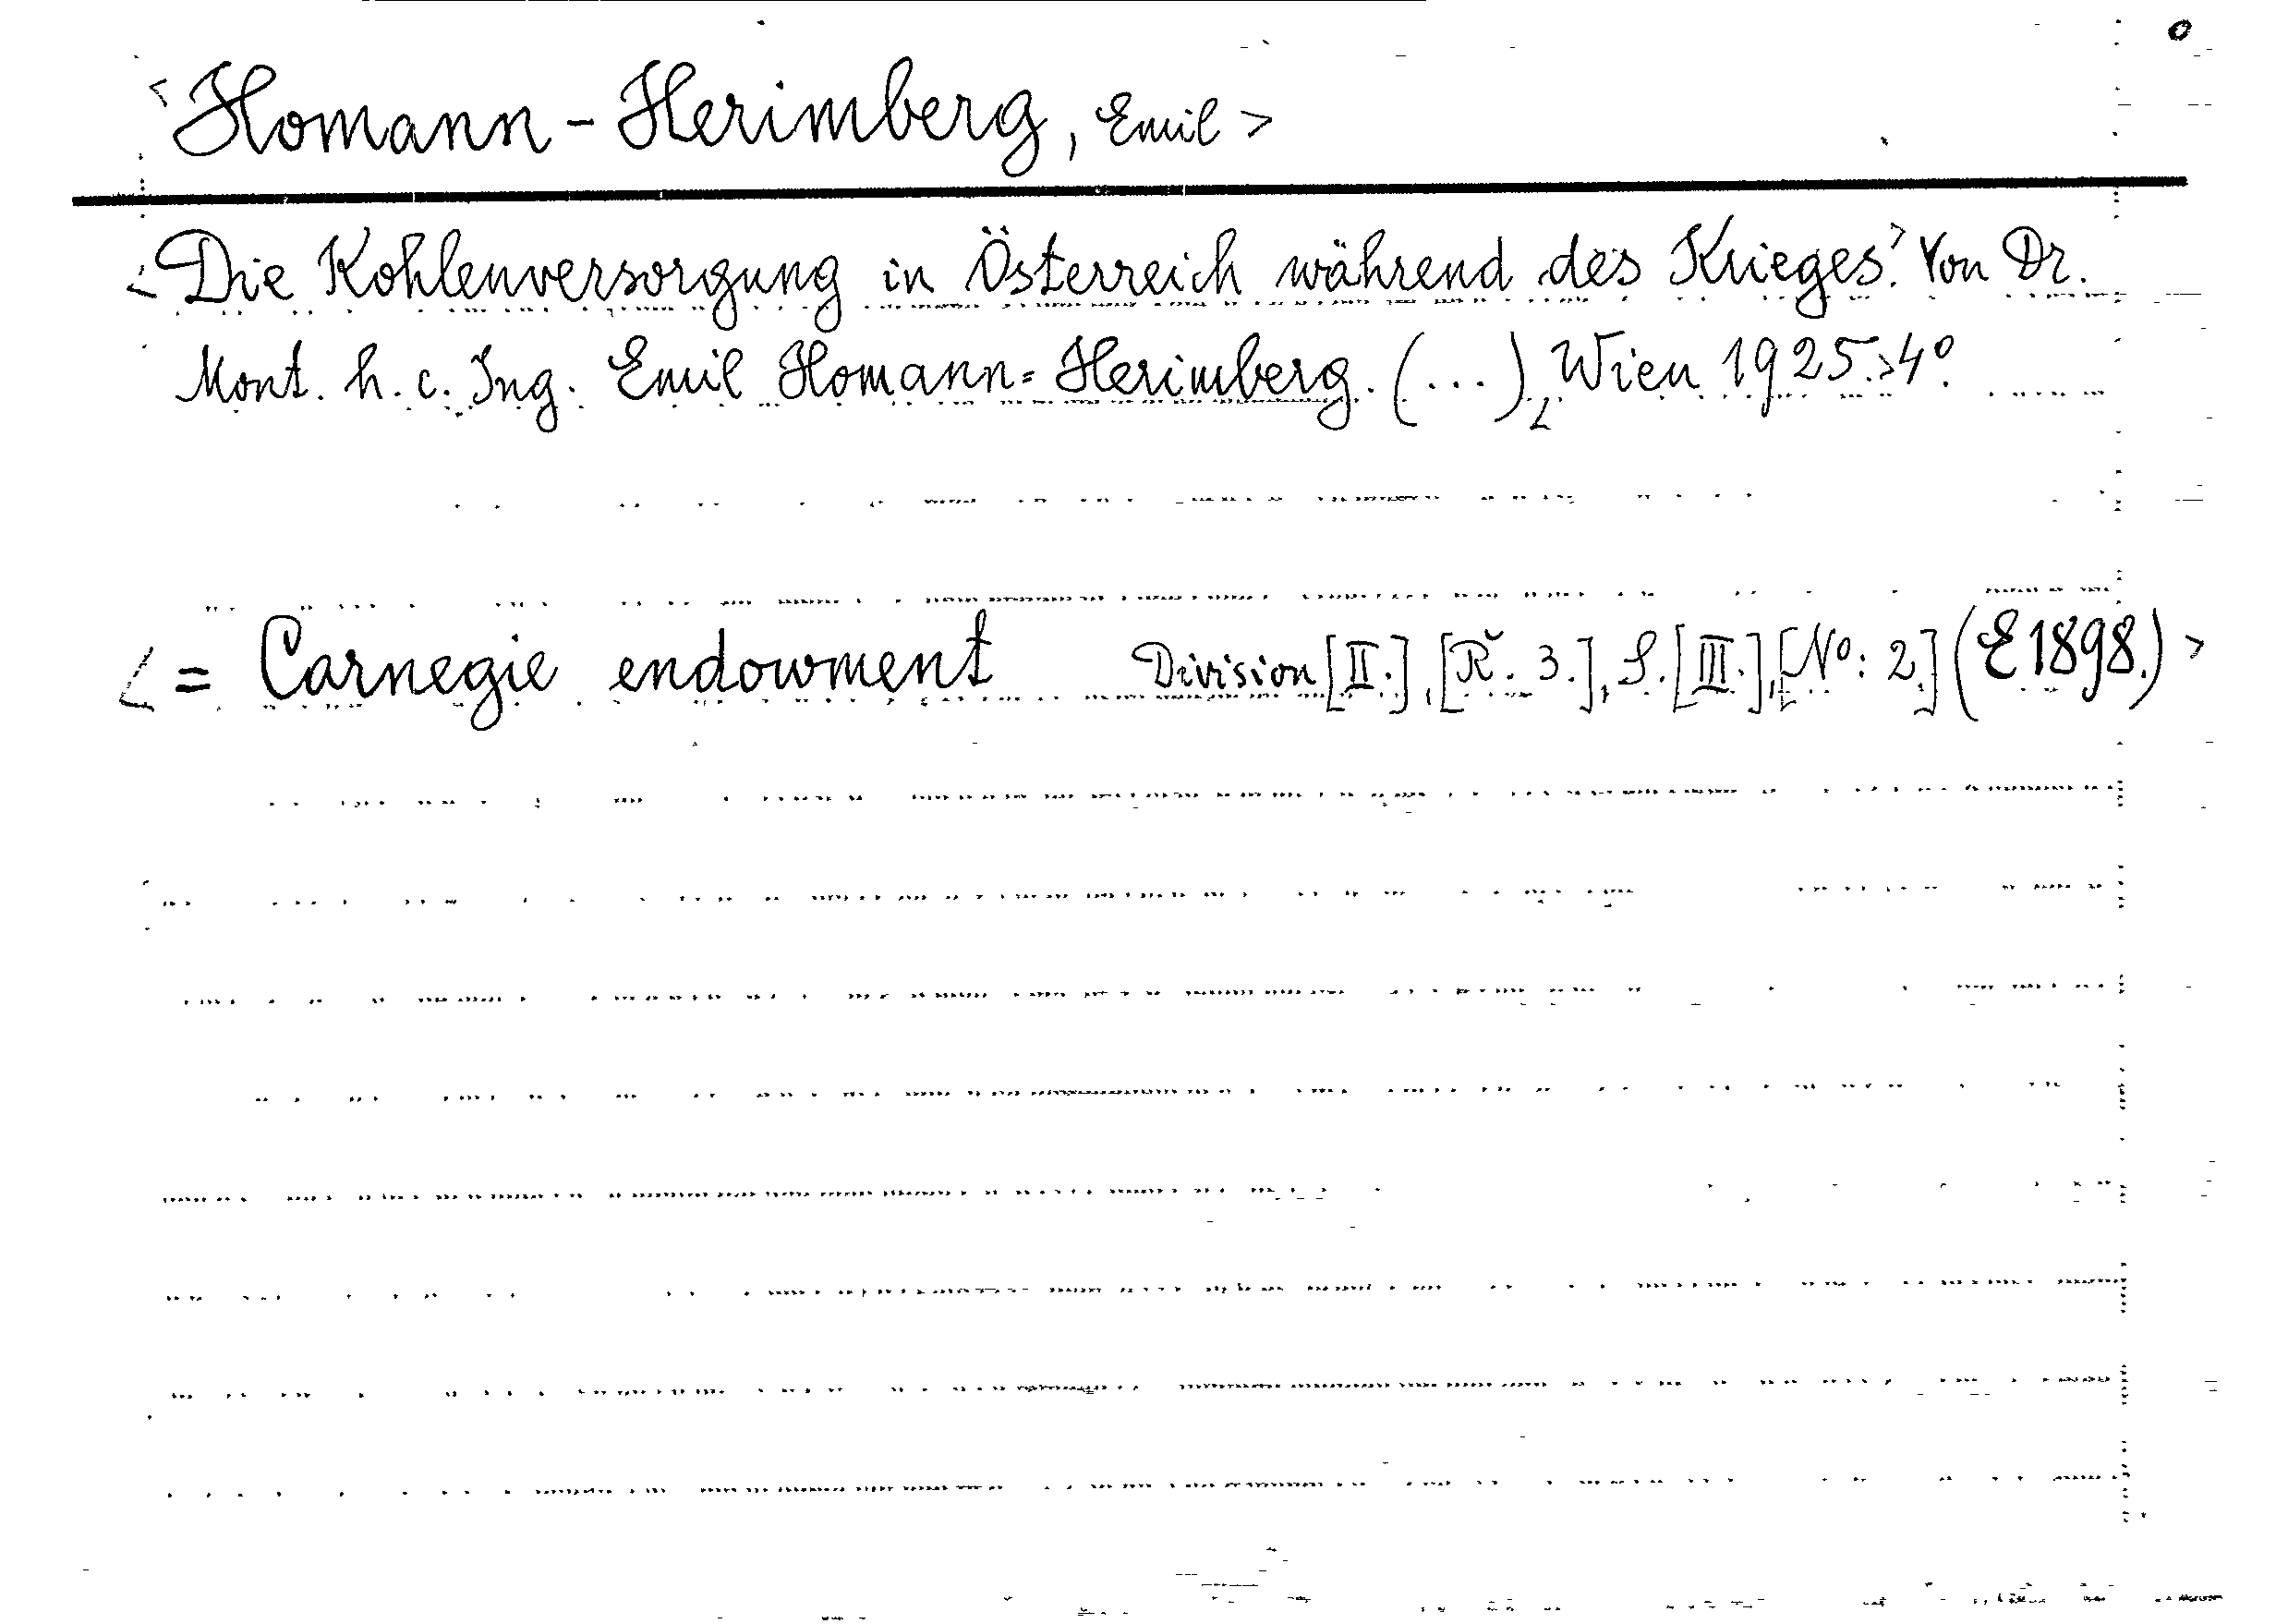 <Homann-Herimberg, Emil>
<Die Kohlenversorgung in Österreich während des Krieges.> Von Dr.
Mont. h. c. Ing. Emil Homann=Herimberg. (...) <Wien 1925.> 4°.
<= Carnegie endowment Division [II.], [R. 3.], S. [III.], [No: 2.] (E 1898.)>